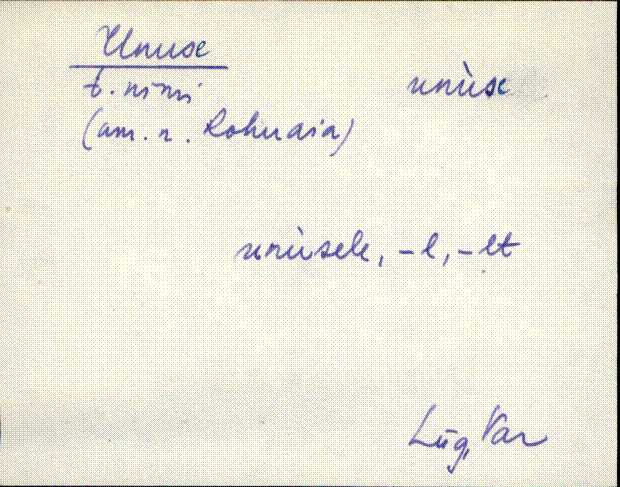 Unuse
t. nimi unùse
(am. n. Rohuaia)
unùsele, -l, -lt
Lüg, Var